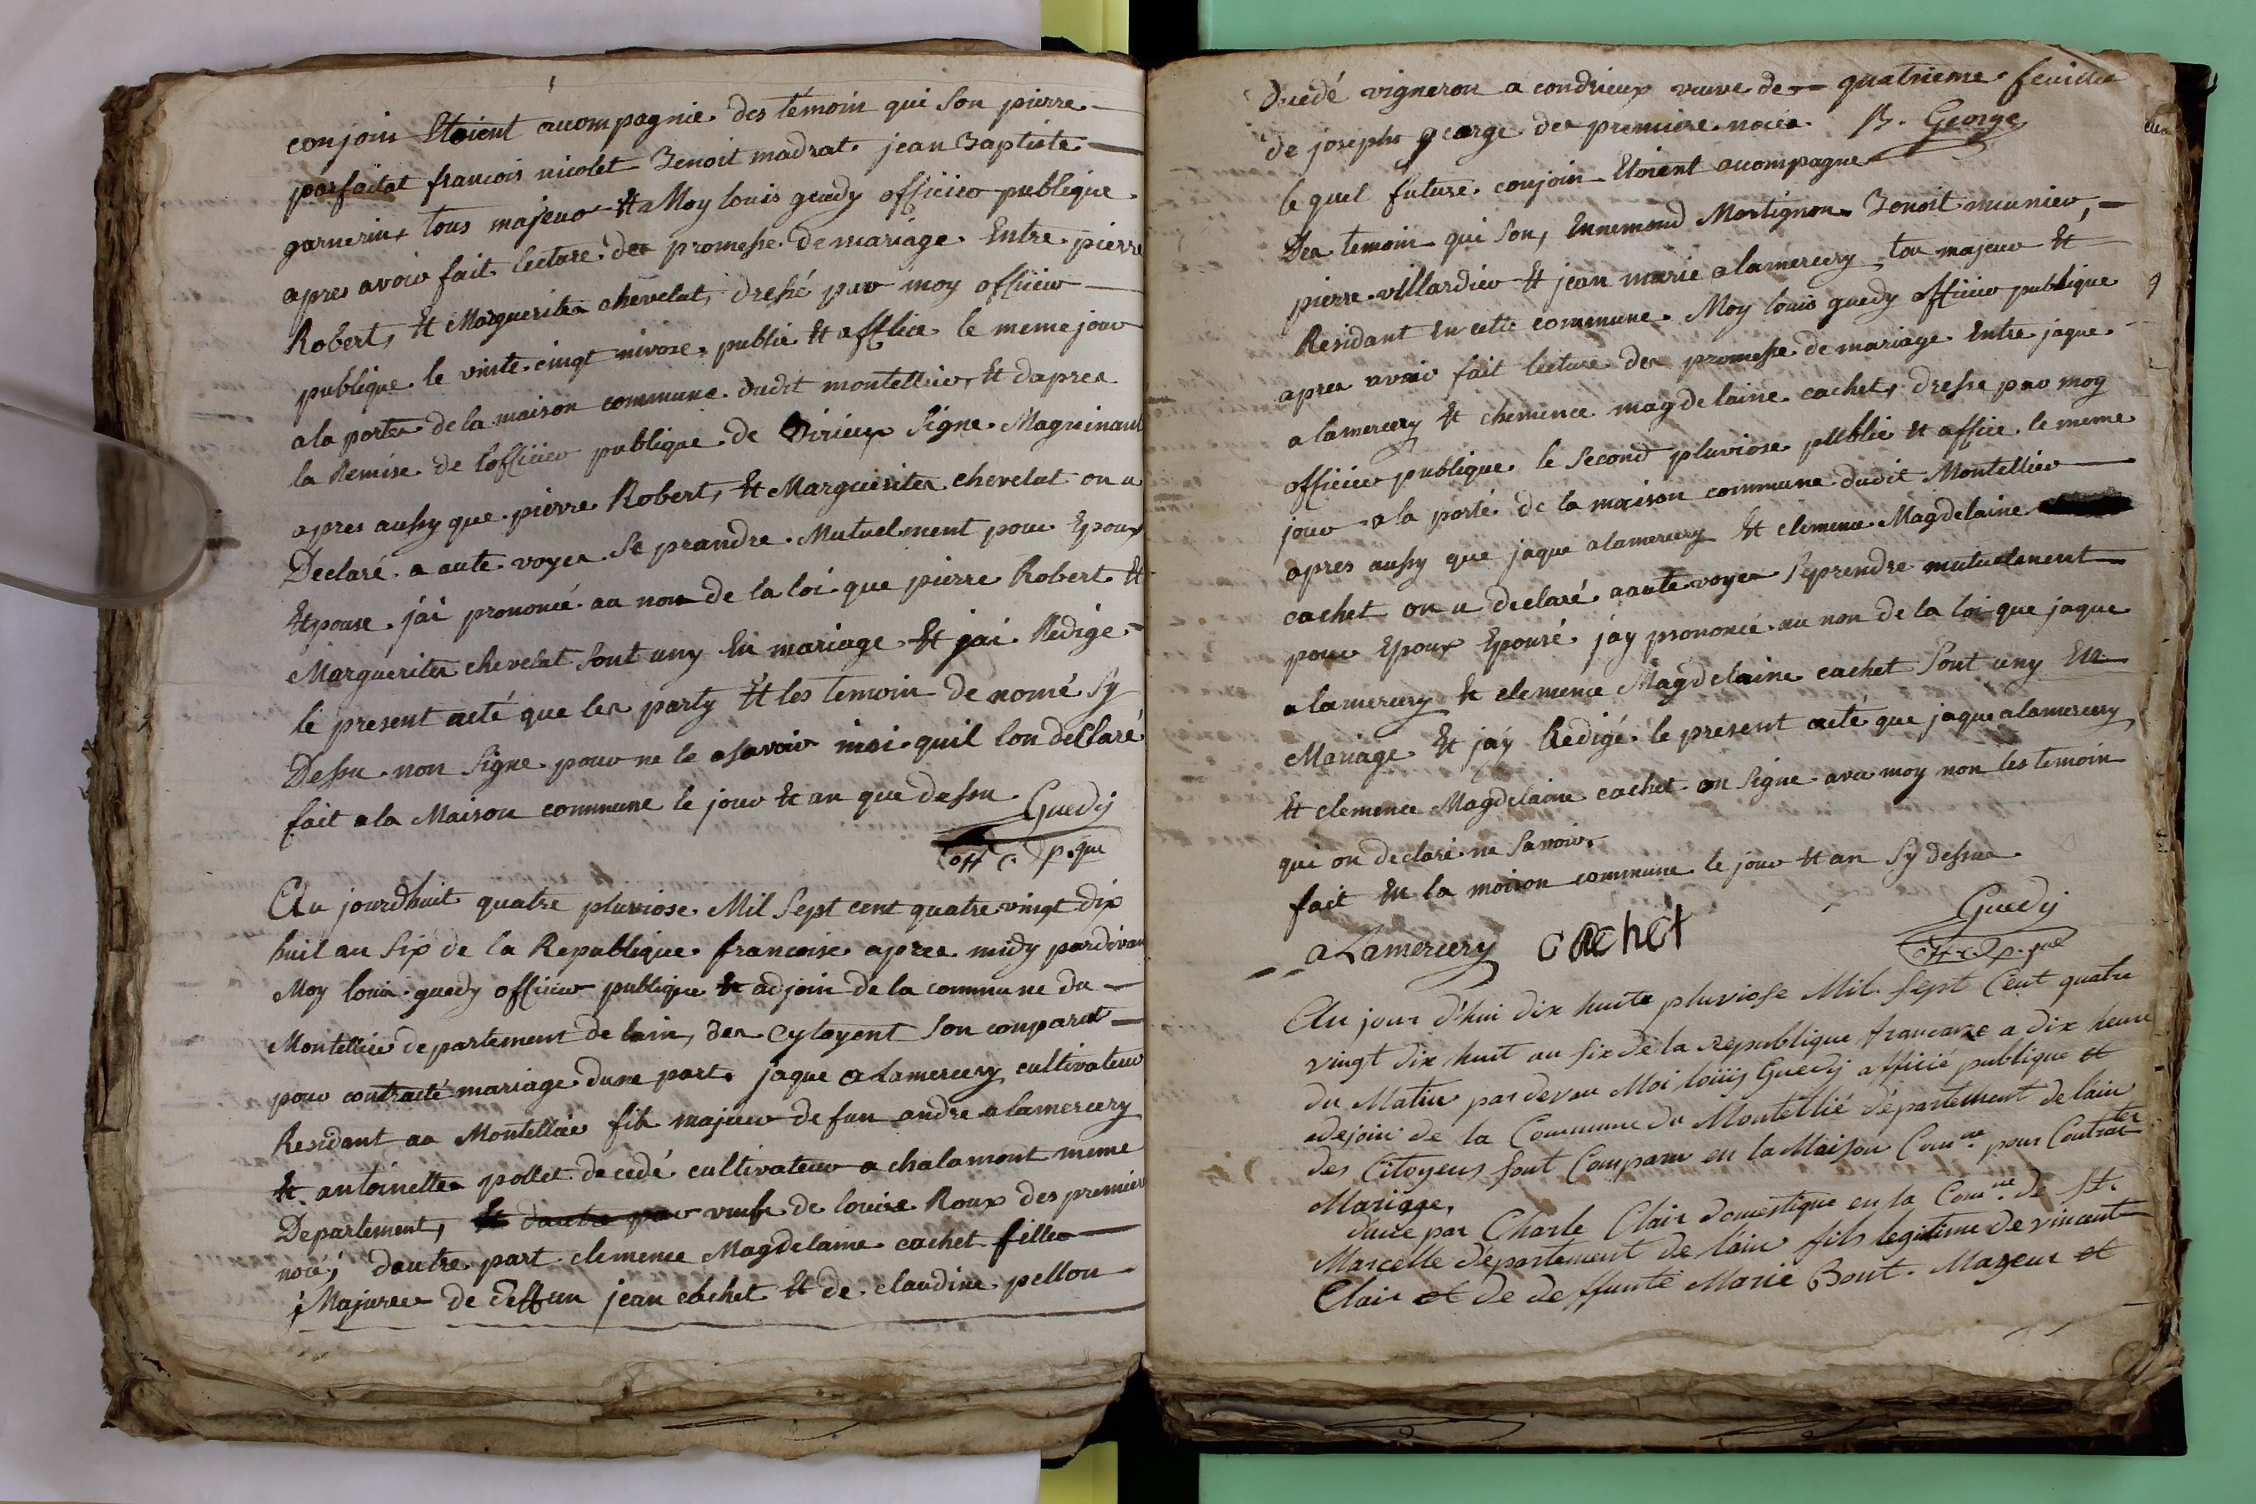 conjoin Etoient acompagnie des témoin qui son pierre
parfaitat francois nicolet Benoit madrat jean Baptiste
garnerin, tous majeur Et Moy louis guedy officier publique
apres avoir fait lecture des promesse de mariage Entre pierre
Robert, Et Marguerite chevelat, dressé par moy officier
publique le vinte cinqt nivose, publie Et affice le meme jour
a la porte de la maison commune dudit montellier, Et dapres
la Remise de lofficier publique de Virieux Signe Magninant
apres aussy que pierre Robert, Et Marguerite chevelat on a
Declaré a aute voyes Se prandre Mutuelment pour Epoux
Et pouse j'ai prononcé au non de la loi que pierre Robert Et
Marguerite chevelat Sont uny En mariage Et jai Redigé
le present acté que les party Et les temoin de nomé Sy
Dessu non Signe pour ne le savoir insi quil lon declaré
fait a la Maison commune le jour Et an que dessu Guedy
off. p.que
Au jourdhuit quatre pluviose Mil Sept cent quatre vingt dix
huit an Six de la Republique francoise apres midy pardivan
Moy louis guedy officier publique Et adjoin de la commune du
Montellier departement de lain, des Cytoyent Son comparat
pour contracté mariage dune part jaque alamercery cultivateur
Residant au Montellier fils majeur de fun andre alamercery
Et antoinette pollet decedé cultivateur a chalamont meme
Departement, Et dautre par veufe de louise Roux des premier
nocé, dautre part clemence Magdelaine cachet fille
Majeure de deffun jean cachet Et de claudine pellon
duedé vigneron a condrieux veuve de quatrieme feuillet
de joseph george des premiere noces B. George
le quel future conjoin Etoient acompagne
Des temoin qui Son, Ennemond Martignon Benoit munier,
pierre villardier Et jean marie alamercery, tou majeur Et
Residant En cette commune Moy louis guedy officier publique
apres avoir fait lecture des promesse de mariage Entre jaque
alamercery Et chemence magdelaine cachet, dresse par moy
officier publique le Second pluviose publie Et affice le meme
jour a la porté de la maison commune dudit Montellier
apres aussy que jaque alamercery Et clemence Magdelaine
cachet on a declaré a aute voyes Seprendre mutuelement
pour Epoux Epousé jay prononcé au non de la loi que jaque
alamercery Et clemence Magdelaine cachet Sont uny En
Mariage Et jay Redigé le present acté que jaque alamercery
Et clemence Magdelaine cachet on Signe avec moy non les temoin
qui on declaré ne Savoir
fait En la moison commune le jour Et an Sy dessu
Guedy
aLamercery cachet
off. p.que
Au jour d'hui dix huite pluviose Mil Sept Cent quatre
vingt dix huit an six de la republique francaize a dix heure
du Matin par devan Moi louiis Guedy officié publique et
adejoin de la Commune du Montellié département de lain
des Citoyens sont Comparu en la Maison Com.ne pour Contracter
Mariage,
dune par Charle Clair domestique en la Com.ne de St.
Marcelle département de lain fils legitime de vincent
Clair et de deffunte Marie Bont Mageur et